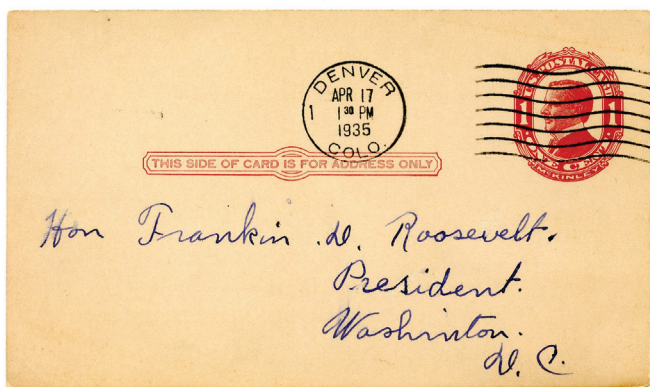 DENVER
APR 17
1 1 30 PM
1935
COLO.
U.S. POSTAL CARD
1 1
McKINLEY
THIS SIDE OF CARD IS FOR ADDRESS ONLY
Hon Frankin D. Roosevelt.
President.
Washinton.
D. C.